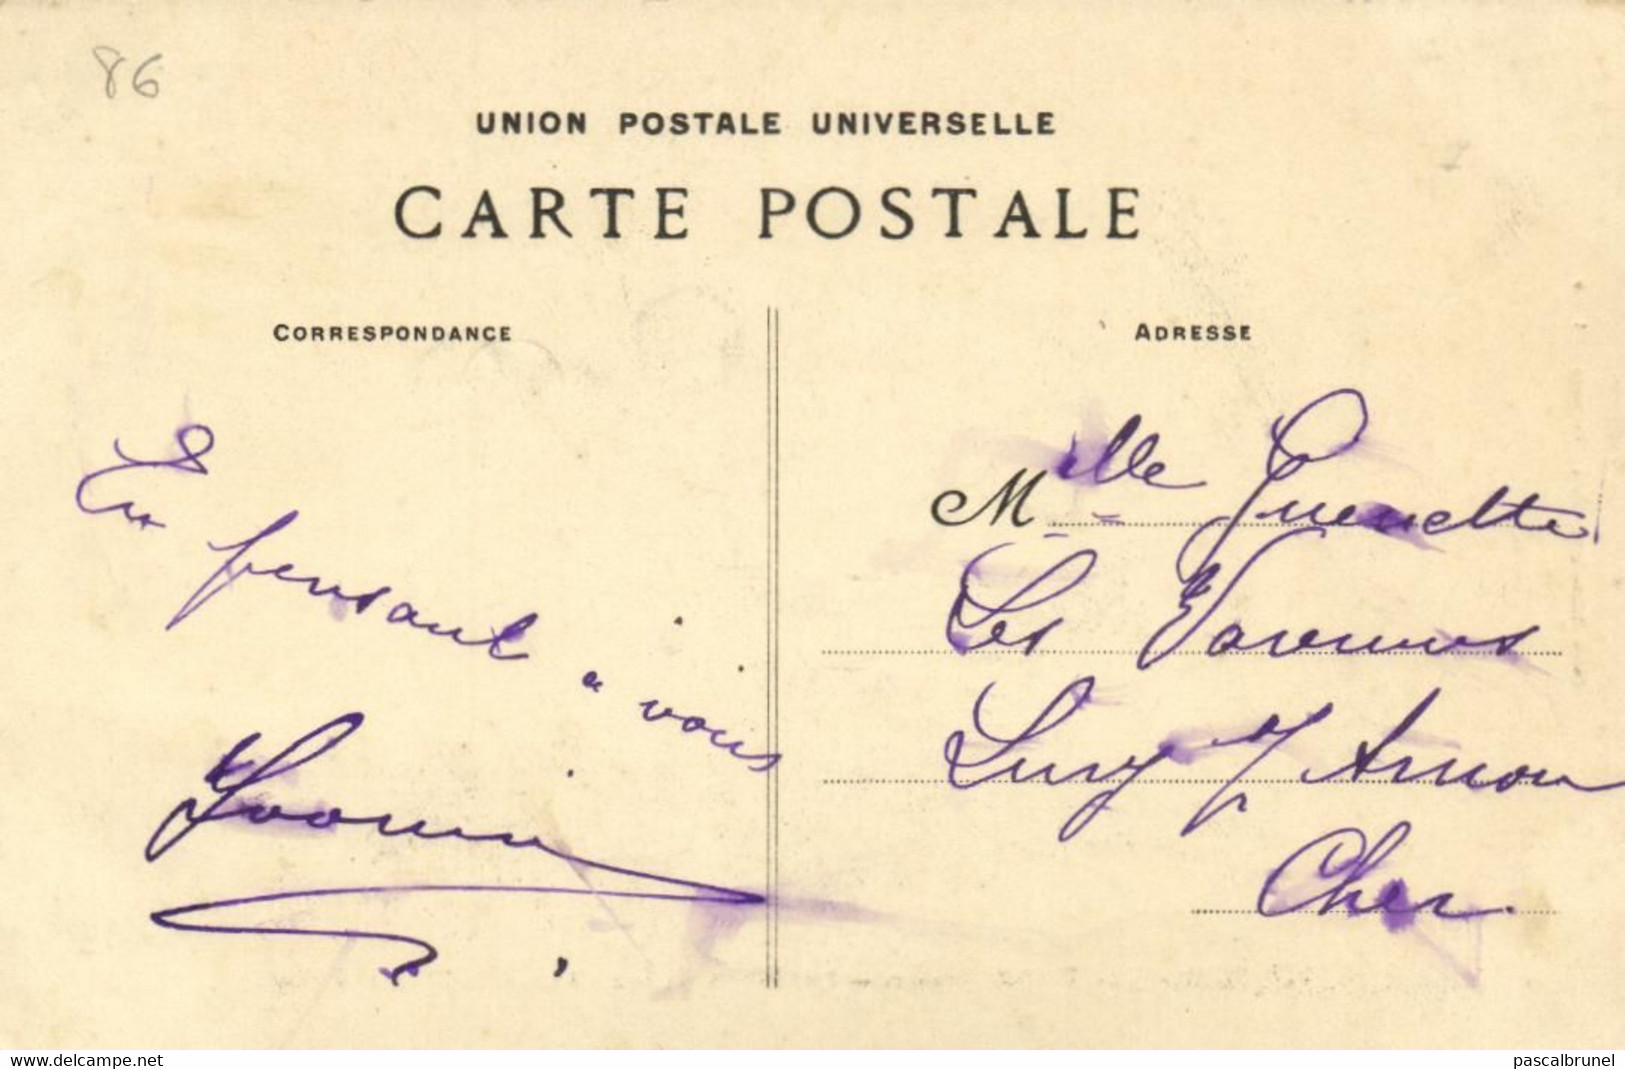 86
UNION POSTALE UNIVERSELLE
CARTE POSTALE
CORRESPONDANCE
ADRESSE
En pensant
à vous
Yvonne
Mlle Guenette
Les Varennes
Lury s/ Arnon
Cher.
www.delcampe.net
pascalbrunel